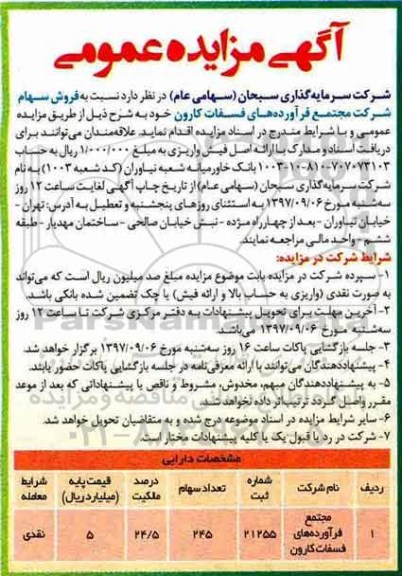 آگهی مزایده عمومی
شرکت سرمایه‌گذاری سبحان (سهامی عام) در نظر دارد نسبت به فروش سهام
شرکت مجتمع فرآورده‌های فسفات کارون خود به شرح ذیل از طریق مزایده
عمومی و با شرایط مندرج در اسناد مزایده اقدام نماید. علاقه‌مندان می‌توانند برای
دریافت اسناد و مدارک با ارائه اصل فیش واریزی به مبلغ ۱/۰۰۰/۰۰۰ ریال به حساب
بانک خاورمیانه شعبه نیاوران (کد شعبه ۱۰۰۳) به نام
شرکت سرمایه‌گذاری سبحان (سهامی عام) از تاریخ چاپ آگهی لغایت ساعت ۱۲ روز
سه‌شنبه مورخ ۱۳۹۷/۰۹/۰۶ به استثنای روزهای پنجشنبه و تعطیل به آدرس: تهران -
خیابان نیاوران - بعد از چهارراه مژده - نبش خیابان صالحی - ساختمان مهدیار - طبقه
ششم - واحد مالی مراجعه نمایند.
شرایط شرکت در مزایده:
۱- سپرده شرکت در مزایده بابت موضوع مزایده مبلغ صد میلیون ریال است که می‌تواند
به صورت نقدی (واریزی به حساب بالا و ارائه فیش) یا چک تضمین شده بانکی باشد.
۲- آخرین مهلت برای تحویل پیشنهادات به دفتر مرکزی شرکت تا ساعت ۱۲ روز
سه‌شنبه مورخ ۱۳۹۷/۰۹/۰۶ می‌باشد.
۳- جلسه بازگشایی پاکات ساعت ۱۶ روز سه‌شنبه مورخ ۱۳۹۷/۰۹/۰۶ برگزار خواهد شد.
۴- پیشنهاددهندگان می‌توانند با ارائه معرفی‌نامه در جلسه بازگشایی پاکات حضور یابند.
۵- به پیشنهاددهندگان مبهم، مخدوش، مشروط و ناقص یا پیشنهاداتی که بعد از موعد
مقرر واصل گردد ترتیب‌اثر داده نخواهد شد.
۶- سایر شرایط مزایده در اسناد موضوعه درج شده و به متقاضیان تحویل خواهد شد.
۷- شرکت در رد یا قبول یک یا کلیه پیشنهادات مختار است.
مشخصات دارایی
ردیف نام شرکت شماره ثبت تعداد سهام درصد مالکیت قیمت پایه (میلیارد ریال) شرایط معامله
۱ مجتمع فرآورده‌های فسفات کارون ۲۱۲۵۵ ۲۴۵ ۲۴/۵ ۵ نقدی